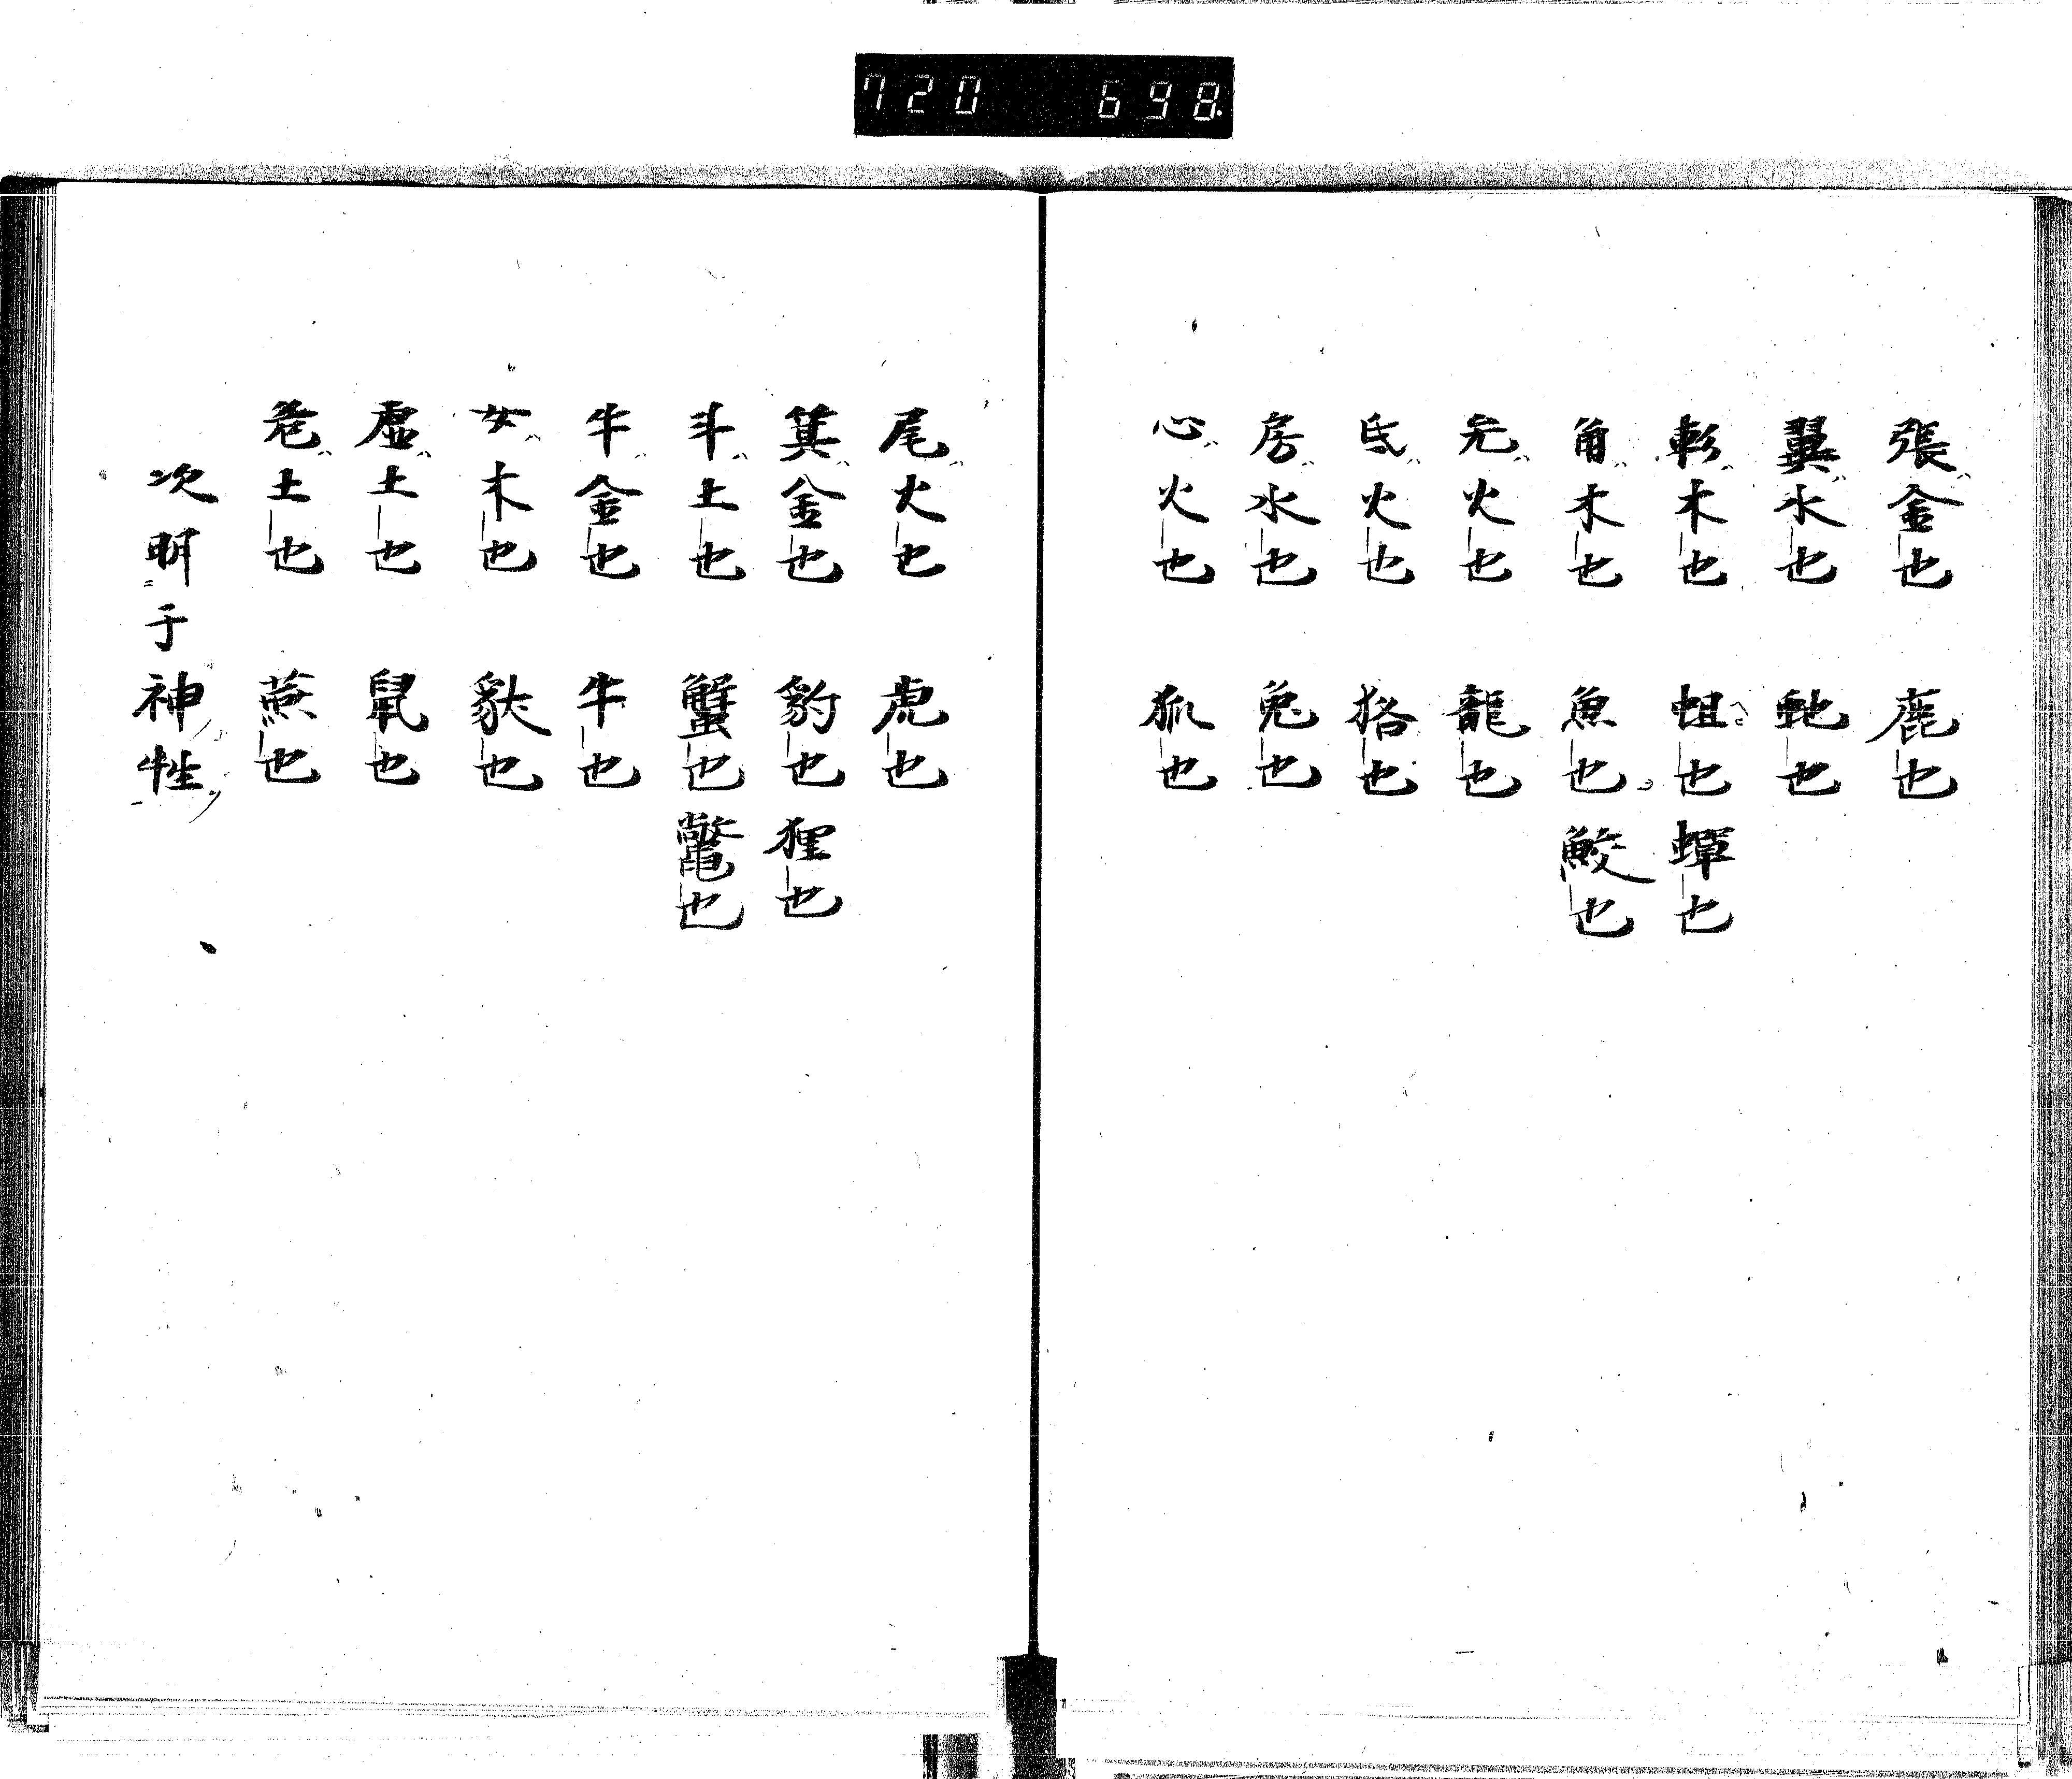 720 698
張金也 鹿也
翼水也 虵也
軫木也 蛆也 蟬也
角木也 魚也 鮫也
亢火也 龍也
氐火也 狢也
房水也 兎也
心火也 狐也
尾火也 虎也
箕金也 豹也 狸也
斗土也 蟹也 鼈也
牛金也 牛也
女木也 也
虚土也 鼠也
危土也 燕也
次明于神牲